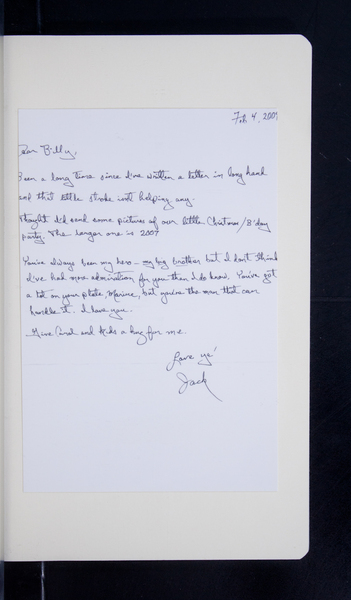 Feb 4, 200
Dear Billy,
Been a long time since I've written a letter in long hand
and that little stroke isn't helping any.
Thought I'd send some pictures of our little Christmas/B'day
party. The larger one is 2007
You've always been my hero - my big brother but I don't think
I've had more admiration for you than I do know. You've got
a lot on your plate, Marine, but you're the man that can
handle it. I love you.
Give Carol and kids a hug for me.
Love ye'
Jack